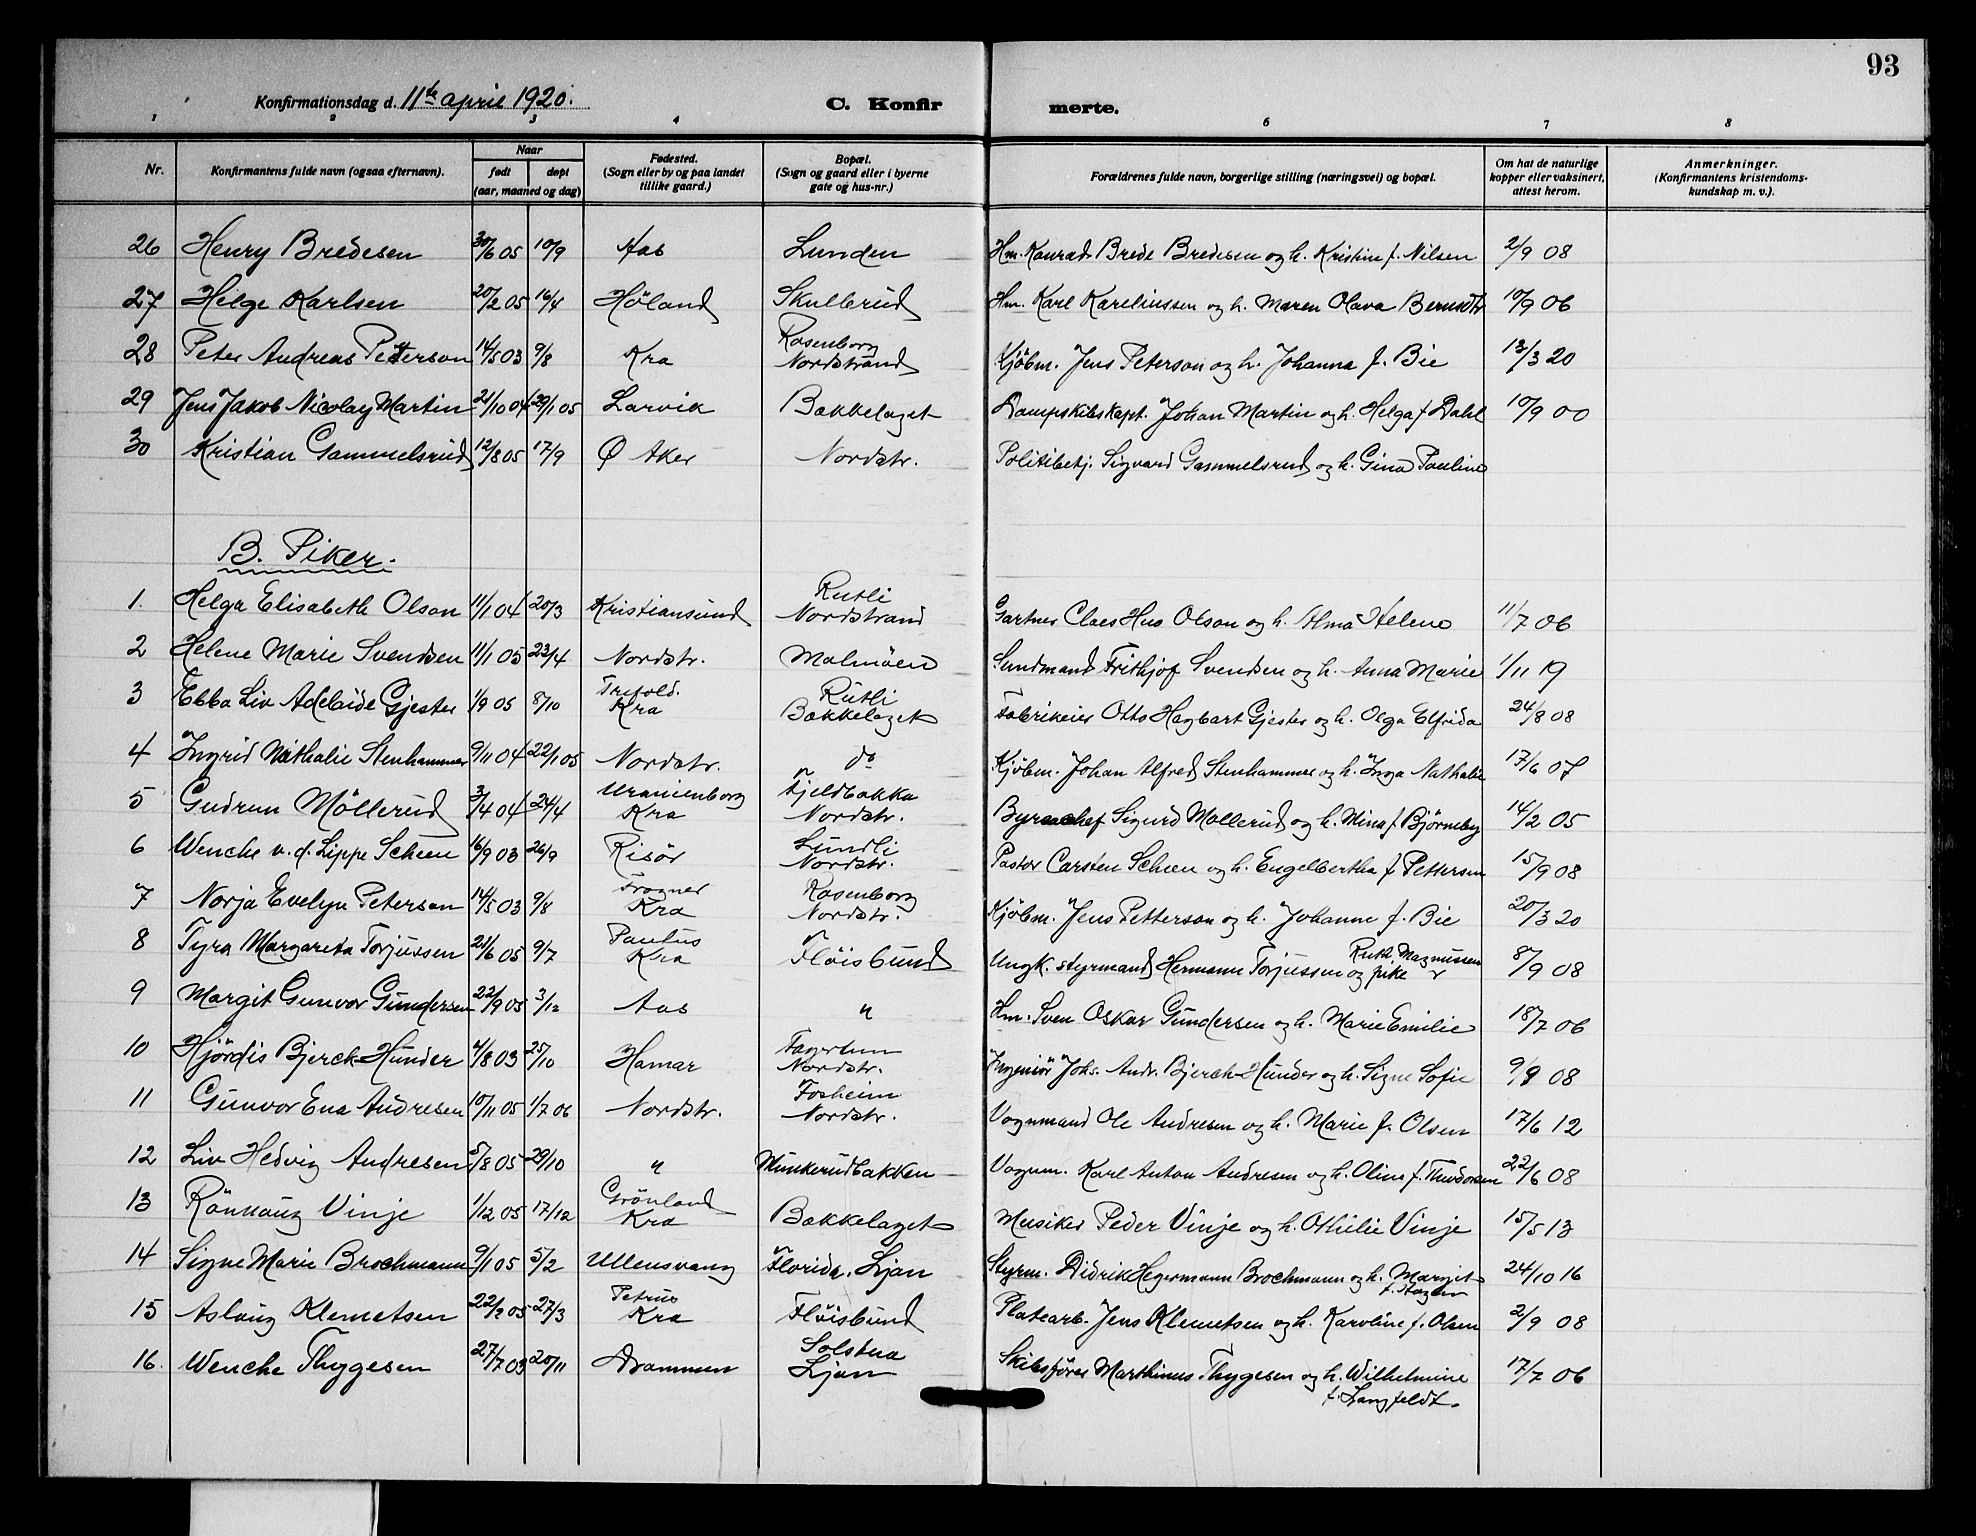 93
Konfirmationsdag d. 11te april 1920. C. Konfir merte.
1 2 3 4 6 7 8
Nr. Konfirmantens fulde navn (ogsaa efternavn). Naar født døpt (aar, maaned og dag) Fødested. (Sogn eller by og paa landet tillike gaard.) Bopæl. (Sogn og gaard eller i byerne gate og hus-nr.) Forældrenes fulde navn, borgerlige stilling (næringsvei) og bopæl. Om hat de naturlige kopper eller vaksinert, attest herom. Anmerkninger. (Konfirmantens kristendoms-kundskap m. v.).
26 Henry Bredesen 30/6 05 10/9 Aas Lunden Hm. Konrad Brede Bredesen og h. Kristine f. Nilsen 2/9 08
27 Helge Karlsen 20/2 05 16/4 Höland Skullerud Hm. Karl Kareliussen og h. Maren Olava Berntsdtr 10/9 06
28 Peter Andreas Petterson 14/5 03 9/8 Kra Rosenborg Nordstrand Kjöbm. Jens Peterson og h. Johanna f. Bie 13/3 20
29 Jens Jakob Nicolay Martin 21/10 04 29/1 05 Larvik Bækkelaget Dampskibskapt. Johan Martin og h. Helga f Dahl 10/9 00
30 Kristian Gammelsrud 12/8 05 17/9 Ø Aker Nordstr. Politibetj. Sigvard Gammelsrud og h. Gina Pauline
B. Piker.
1. Helga Elisabeth Olson 11/1 04 20/3 Kristiansund Rutli Nordstrand Gartner Claes Hus Olson og h. Alma Helene 11/7 06
2 Helene Marie Svendsen 11/1 05 23/4 Nordstr. Malmöen Sundmand Frithjof Svendsen og h. Anna Marie 1/11 19
3 Ebba Liv Adelaide Gjester 1/9 05 8/10 Trefold. Kra Rutli Bækkelaget Fabrikeier Otto Hagbart Gjester og h. Olga Elfrida 24/8 08
4 Ingrid Nathalie Stenhammer 9/11 04 22/1 05 Nordstr. do Kjöbm. Johan Alfred Stenhammer og h. Inga Nathalie 17/6 07
5 Gudrun Möllerud 3/4 04 24/4 Uranienborg Kra Fjeldbakka Nordstr. Byraachef Sigurd Möllerud og h. Mina f. Björneby 14/2 05
6 Wenche v. d. Lippe Scheen 16/9 03 26/9 Risör Lundli Nordstr. Pastor Carsten Scheen og h. Engelbertha f Pettersen 15/9 08
7 Norja Evelyn Peterson 14/5 03 9/8 Frogner Kra Rosenborg Nordstr. Kjöbm. Jens Petterson og h. Johanne f. Bie 20/3 20
8 Tyra Margareta Torjussen 21/6 05 9/7 Paulus Kra Flöisbund Ungk. styrmand Hermann Torjussen og pike Ruth Magnussen 8/9 08
9 Margit Gunvor Gundersen 22/9 05 3/12 Aas " Hm. Sven Oskar Gundersen og h. Marie Emilie 18/7 06
10 Hjördis Bjerck-Hunder 4/8 03 25/10 Hamar Fagertun Nordstr. Ingeniör Johs. Andr. Bjerck-Hunder og h. Signe Sofie 9/9 08
11 Gunvor Ena Andresen 10/11 05 1/7 06 Nordstr. Fosheim Nordstr. Vognmand Ole Andresen og h. Marie f. Olsen 17/6 12
12 Liv Hedvig Andresen 5/8 05 29/10 " Munkerudbakken Vognm. Karl Anton Andresen og h. Oline f. Theodorsen 22/6 08
13 Rönnaug Vinje 1/12 05 17/12 Grönland Kra Bækkelaget Musiker Peder Vinje og h. Othilie Vinje 15/5 13
14 Signe Marie Brochmann 9/1 05 5/2 Ullensvang Florida. Ljan Styrm. Didrik Hegermann Brochmann og h. Margit 24/10 16
15 Aslaug Klemetsen 22/2 05 27/3 Petrus Kra Flöisbund Platearb. Jens Klemetsen og h. Karoline f. Olsen 2/9 08
16. Wenche Thygesen 27/7 03 20/11 Drammen Solstua Ljan Skibsförer Marthinus Thygesen og h. Wilhelmine f. Langfeldt. 17/7 06